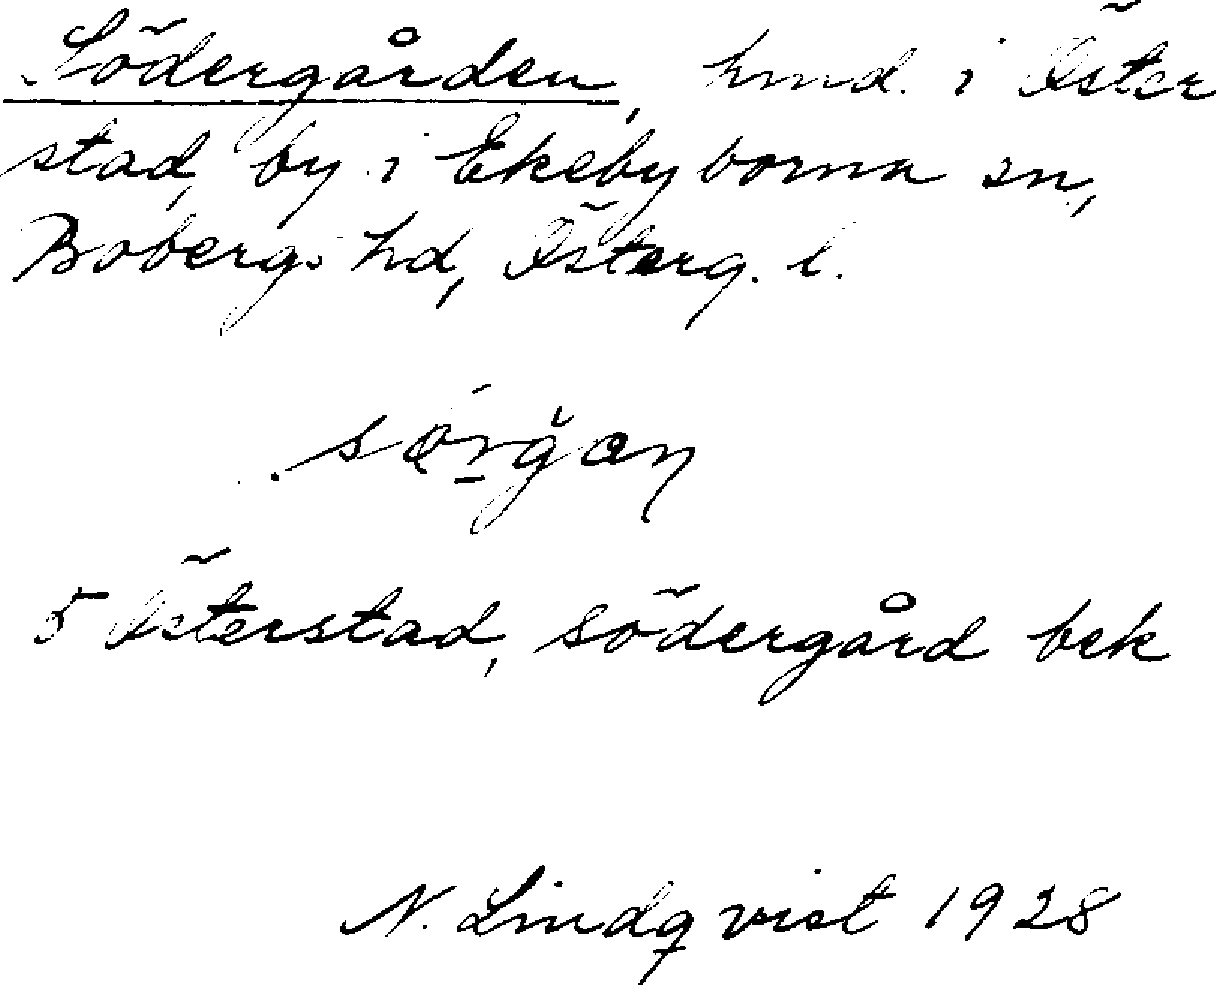 Södergården, hmd. i Öster
stad, by i Ekebyborna sn,
Bobergs hd, Österg. l.
5 Österstad, södergård bek
N. Lindqvist 1928